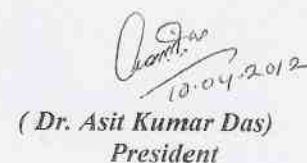 10.04.2012
( Dr. Asit Kumar Das)
President